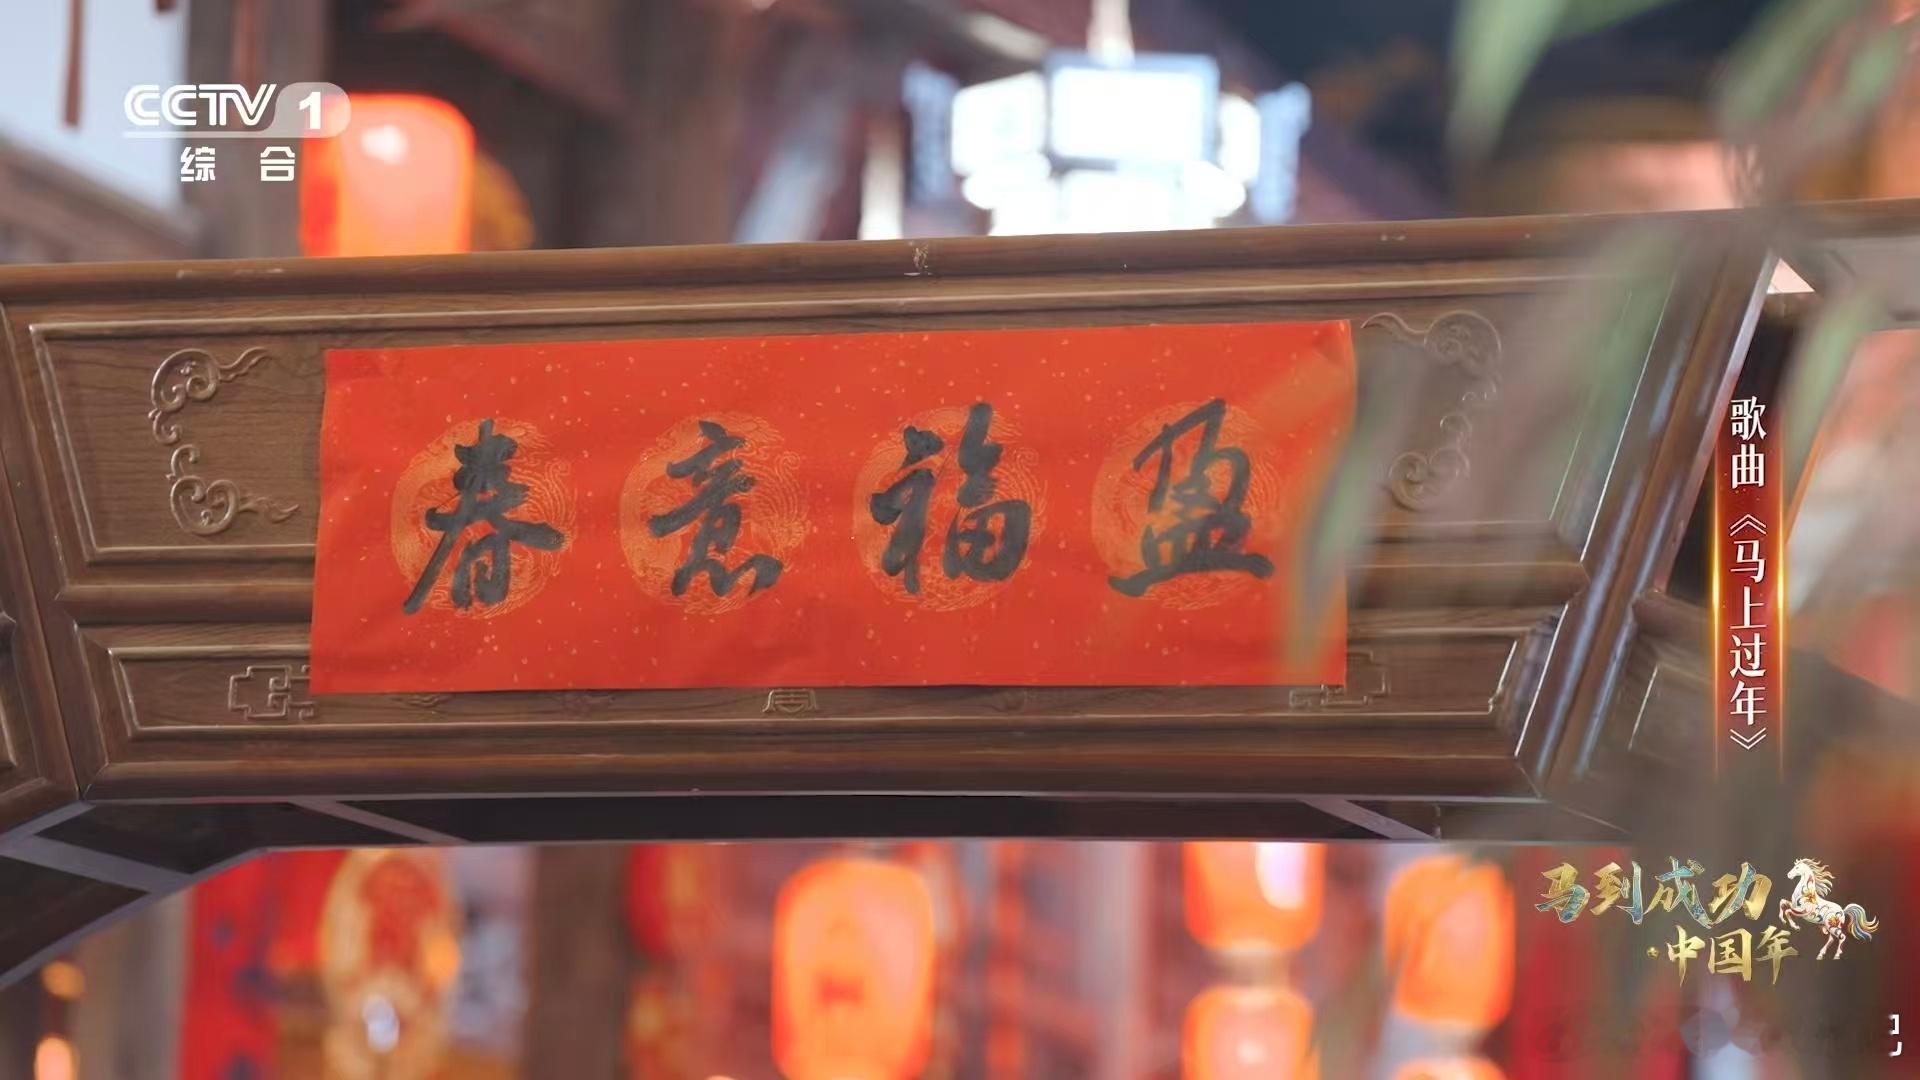 CCTV 1
综合
春意福盈
歌曲《马上过年》
马到成功
·中国年